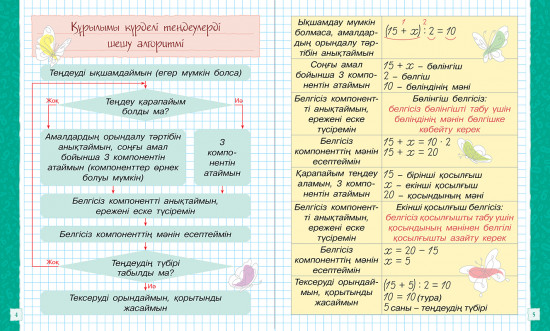 Құрылымы күрделі теңдеулерді
шешу алгоритмі
Теңдеуді ықшамдаймын (егер мүмкін болса)
Жоқ
Теңдеу қарапайым
болды ма?
Иә
Амалдардың орындалу тәртібін
анықтаймын, соңғы амал
бойынша 3 компонентін
атаймын (компоненттер өрнек
болуы мүмкін)
3
компо-
нентін
атаймын
Белгісіз компонентті анықтаймын,
ережені еске түсіремін
Белгісіз компоненттің мәнін есептеймін
Жоқ
Теңдеудің түбірі
табылды ма?
Иә
Тексеруді орындаймын, қорытынды
жасаймын
4
Ықшамдау мүмкін
болмаса, амалдар-
дың орындалу тәр-
тібін анықтаймын
1 2
(15 + x) : 2 = 10
Соңғы амал
бойынша 3 компо-
нентін атаймын
15 + x – бөлінгіш
2 – бөлгіш
10 – бөліндінің мәні
Белгісіз компонент-
ті анықтаймын,
ережені еске
түсіремін
Бөлінгіш белгісіз:
белгісіз бөлінгішті табу үшін
бөліндінің мәнін бөлгішке
көбейту керек
Белгісіз
компоненттің мәнін
есептеймін
15 + x = 10 · 2
15 + x = 20
Қарапайым теңдеу
аламын, 3 компо-
нентін атаймын
15 – бірінші қосылғыш
x – екінші қосылғыш
20 – қосындының мәні
Белгісіз компонент-
ті анықтаймын,
ережені еске
түсіремін
Екінші қосылғыш белгісіз:
белгісіз қосылғышты табу үшін
қосындының мәнінен белгілі
қосылғышты азайту керек
Белгісіз
компоненттің мәнін
есептеймін
x = 20 – 15
x = 5
Тексеруді орындай-
мын, қорытынды
жасаймын
(15 + 5) : 2 = 10
10 = 10 (тура)
5 саны – теңдеудің түбірі
5